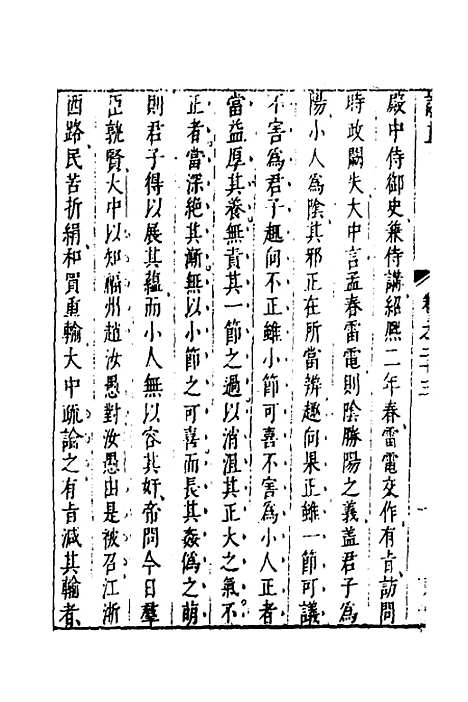 卷之二十三
殿中侍御史兼侍講紹熙二年春雷電交作有旨訪問
時政闕失大中言孟春雷電則陰勝陽之義蓋君子為
陽小人為陰其邪正在所當辨趣向果正雖一節可議
不害為君子趣向不正雖小節可喜不害為小人正者
當益厚其養無責其一節之過以消沮其正大之氣不
正者當深絕其漸無以小節之可喜而長其姦偽之萌
則君子得以展其蘊而小人無以容其奸帝問今日羣
臣孰賢大中以知福州趙汝愚對汝愚由是被召江浙
西路民苦折絹和買重輸大中疏論之有旨減其輸者